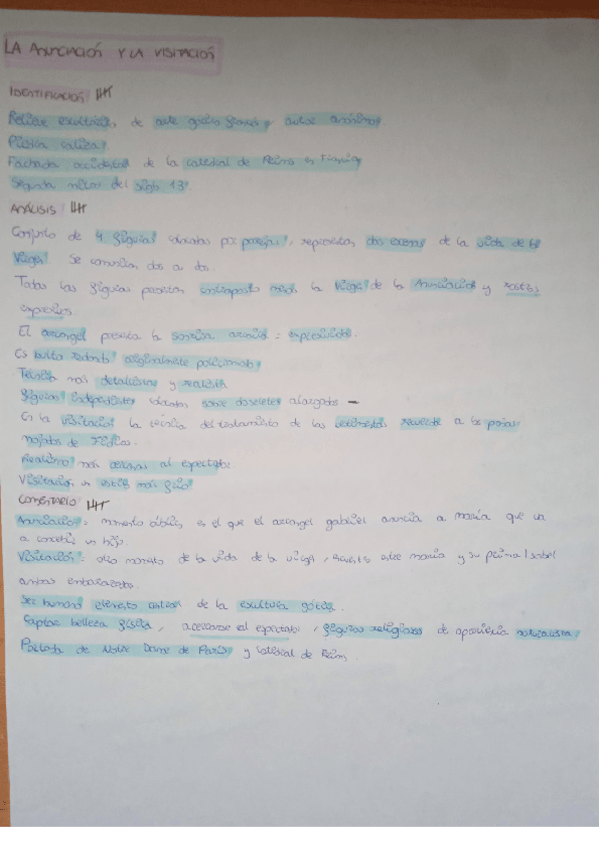 LA ANUNCIACIÓN Y LA VISITACIÓN
IDENTIFICACIÓN
Relieve escultórico, de arte gótico francés y autor anónimo.
Piedra caliza
Fachada occidental de la catedral de Reims en Francia
Segunda mitad del siglo 13
ANÁLISIS
Conjunto de 4 figuras colocadas por parejas, representan dos escenas de la vida de la
Virgen. Se comunican dos a dos.
Todas las figuras presentan contraposto menos la Virgen de la Anunciación y rostros
El arcángel presenta la sonrisa
Es bulto redondo originalmente policromado
Técnica más detallista y realista
Figuras independientes colocadas sobre doseletes alargados
En la visitación la técnica del tratamiento de las recuerda a los paños
mojados de Fidias.
Realismo más cercano al espectador.
Visitación en estilo más
COMENTARIO
Anunciación: momento bíblico en el que el arcángel gabriel anuncia a maría que va
a concebir un hijo.
Visitación: otro momento de la vida de la virgen, encuentro entre maría y su prima Isabel
ambas embarazadas.
Ser humano elemento de la escultura gótica.
Captar belleza física, acercarse al espectador, figuras religiosas de apariencia naturalista
Portada de Notre Dame de París y catedral de Reims.